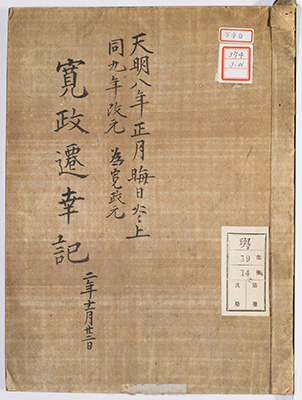 天明八年正月晦日炎上
同九年改元 為寛政元
寛政遷幸記
二年十一月廿二日
写字台
374
3-W
19
14